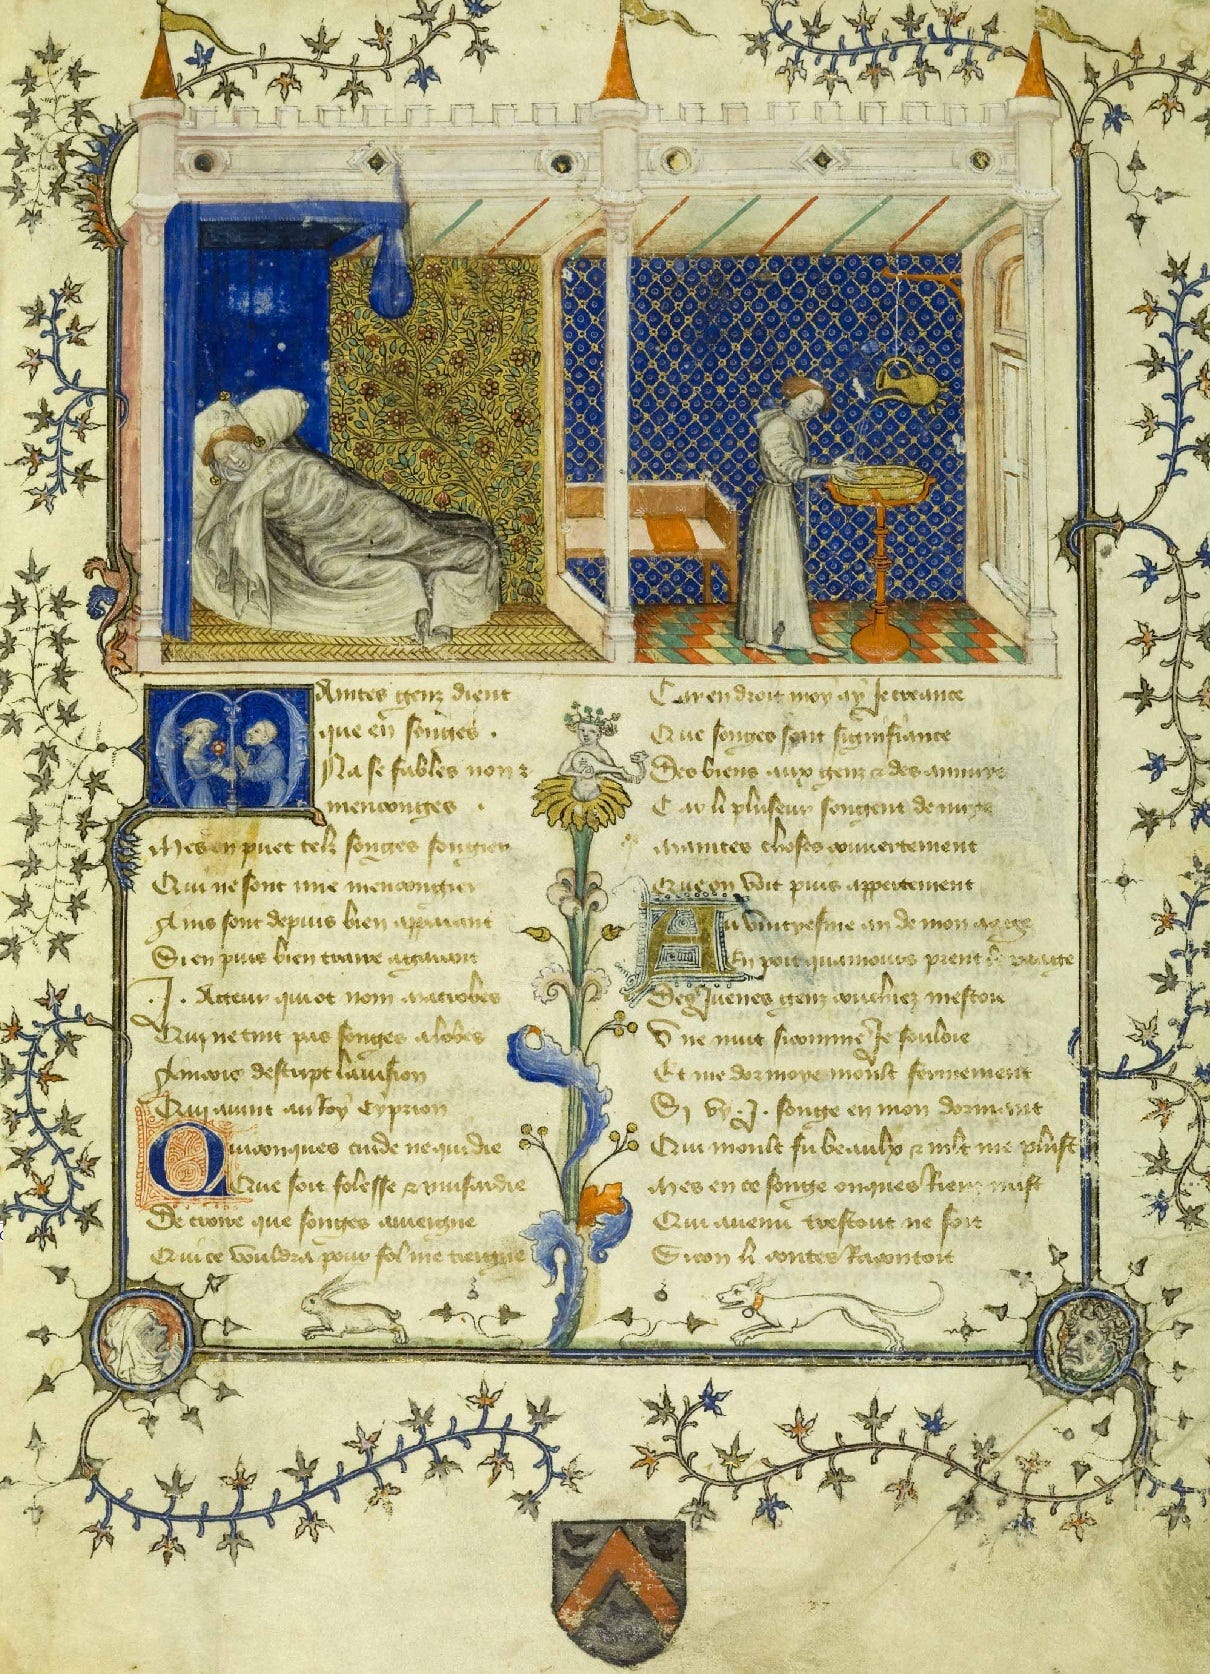 Maintes genz dient
que en songes
Na se fables non &
menconges
Mes en puet telz songes songier
Qui ne sont mie mencongier
Ains sont depuis bien apparant
Si en puis bien traire a garant
.J. Acteur qui ot nom Macrobes
Qui ne tint pas songes a lobes
Aincois descript lavision
Qui avint au Roy Cyprion
Quiconques cuide ne qui die
Que soit folesse & musardie
De croire que songes aviegne
Qui ce vouldra pour fol me tiengne
Car en droit moy ay Je creance
Que songes sont signifiance
Des biens aux genz & des annuys
Car li pluseur songent de nuys
Maintes choses couvertement
Que on voit puis appertement
Au vintyesme an de mon aage
En point quamours prent le paage
Des Juenes genz couchiez mestoie
Une nuit si comme Je souloie
Et me dormoye moult forment
Si vy .J. songe en mon dormant
Qui moult fu beaulx & mlt me plust
Mes en ce songe onques Riens nust
Qui avenu trestout ne soit
Si con li contes Racontoit